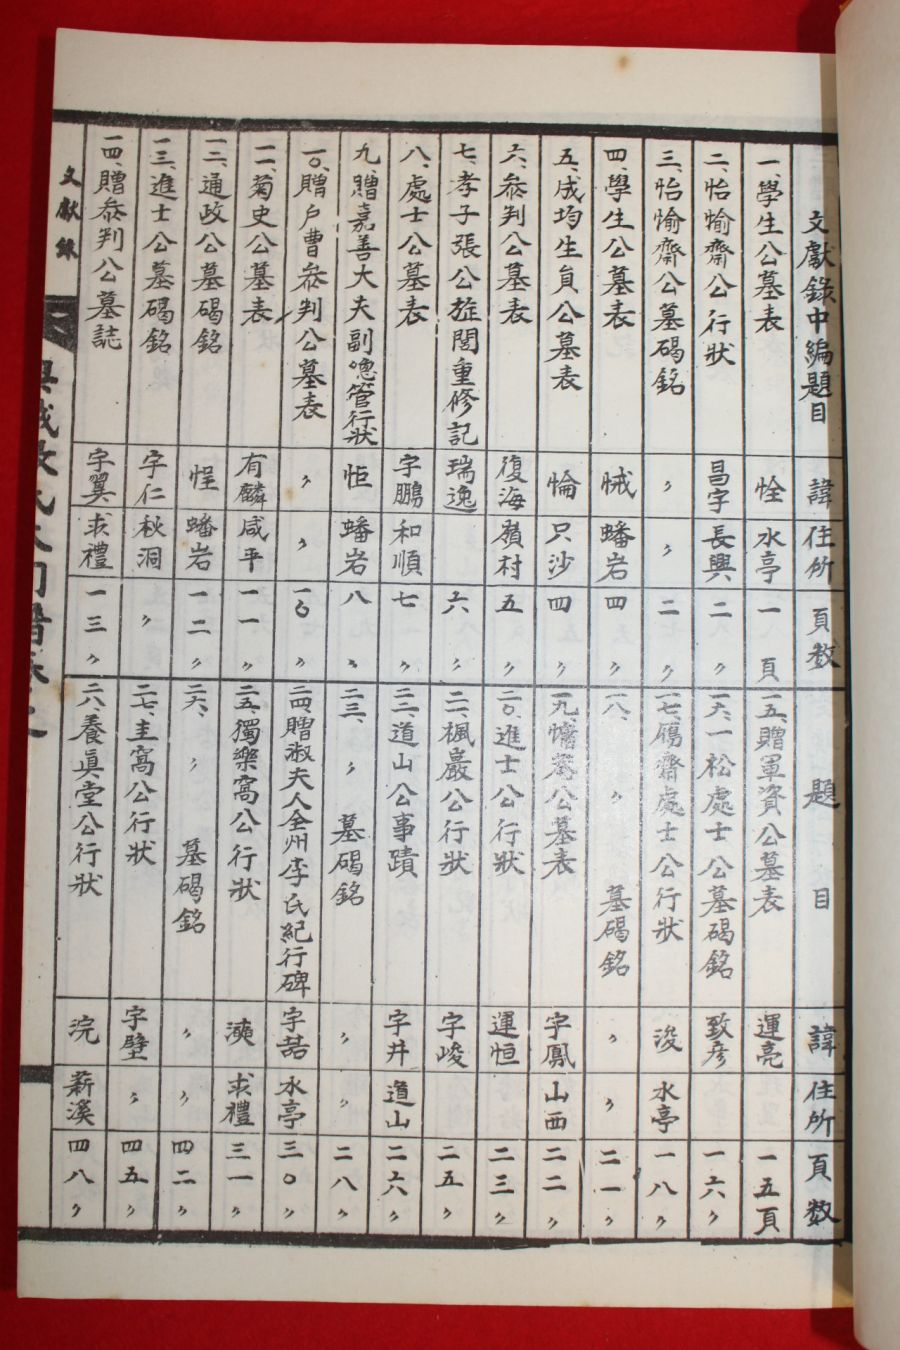 文獻錄中編題目 諱 住所 頁数
一、學生公墓表 恮 水亭 一頁
二、怡愉齋公行狀 昌宇 長興 二〃
三、怡愉齋公墓碣銘 〃 〃 二〃
四、學生公墓表 悈 蟠岩 四〃
五、成均生員公墓表 惀 只沙 四〃
六、叅判公墓表 復海 嶺村 五〃
七、孝子張公旌閭重修記 瑞逸 六〃
八、處士公墓表 字鵬 和順 七〃
九、贈嘉善大夫副總管行狀 怇 蟠岩 八〃
一〇、贈戶曹叅判公墓表 〃 〃 一〇〃
一一、菊史公墓表 有麟 咸平 一一〃
一二、通政公墓碣銘 悜 蟠岩 一二〃
一三、進士公墓碣銘 字仁 秋洞 〃
一四、贈叅判公墓誌 字翼 求禮 一三〃
題目 諱 住所 頁数
一五、贈軍資公墓表 運亮 一五頁
一六、一松處士公墓碣銘 致彦 一六〃
一七、傷齋處士公行狀 浚 水亭 一八〃
一八、〃墓碣銘 〃 〃 二一〃
一九、公墓表 字鳳 山西 二二〃
二〇、進士公行狀 運恒 二三〃
二一、楓巖公行狀 字峻 二五〃
二二、道山公事蹟 字井 道山 二六〃
二三、〃墓碣銘 〃 〃 二八〃
二四、贈淑夫人全州李氏紀行碑 字喆 水亭 三〇〃
二五、獨樂窩公行狀 澳 求禮 三一〃
二六、〃墓碣銘 〃 〃 四二〃
二七、圭窩公行狀 字壁 〃 四五〃
二八、養眞堂公行狀 浣 薪溪 四八〃
文獻錄